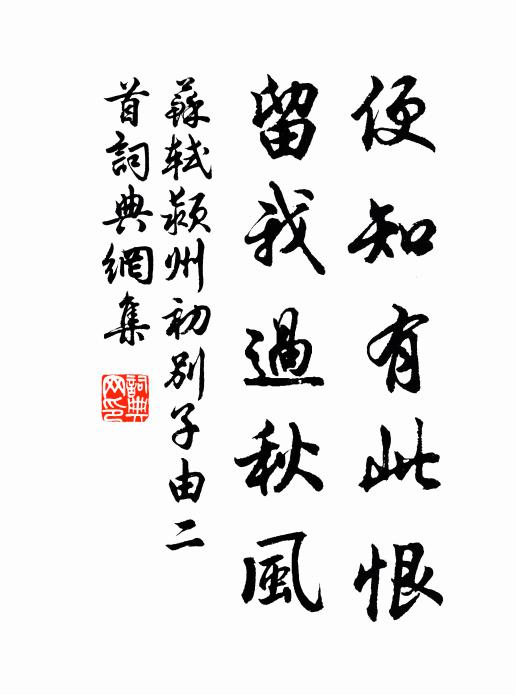 便知有此恨
留我過秋風
蘇軾潁州初別子由二
首詞典網集
詞典網印